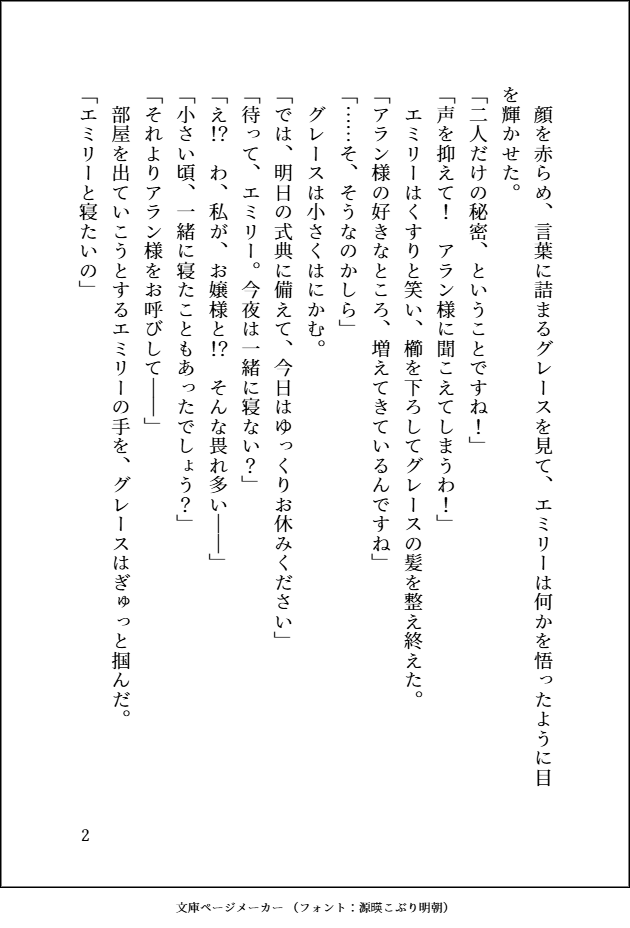 顔を赤らめ、言葉に詰まるグレースを見て、エミリーは何かを悟ったように目
を輝かせた。
「二人だけの秘密、ということですね！」
「声を抑えて！　アラン様に聞こえてしまうわ！」
　エミリーはくすりと笑い、櫛を下ろしてグレースの髪を整え終えた。
「アラン様の好きなところ、増えてきているんですね」
「……そ、そうなのかしら」
　グレースは小さくはにかむ。
「では、明日の式典に備えて、今日はゆっくりお休みください」
「待って、エミリー。今夜は一緒に寝ない？」
「え!?　わ、私が、お嬢様と!?　そんな畏れ多い――」
「小さい頃、一緒に寝たこともあったでしょう？」
「それよりアラン様をお呼びして――」
　部屋を出ていこうとするエミリーの手を、グレースはぎゅっと掴んだ。
「エミリーと寝たいの」
2
文庫ページメーカー（フォント：源暎こぶり明朝）